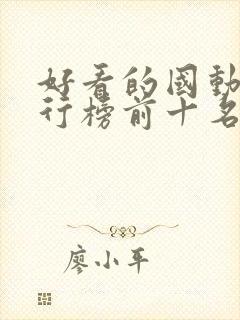 好看的國動
行榜前十名
廖小平